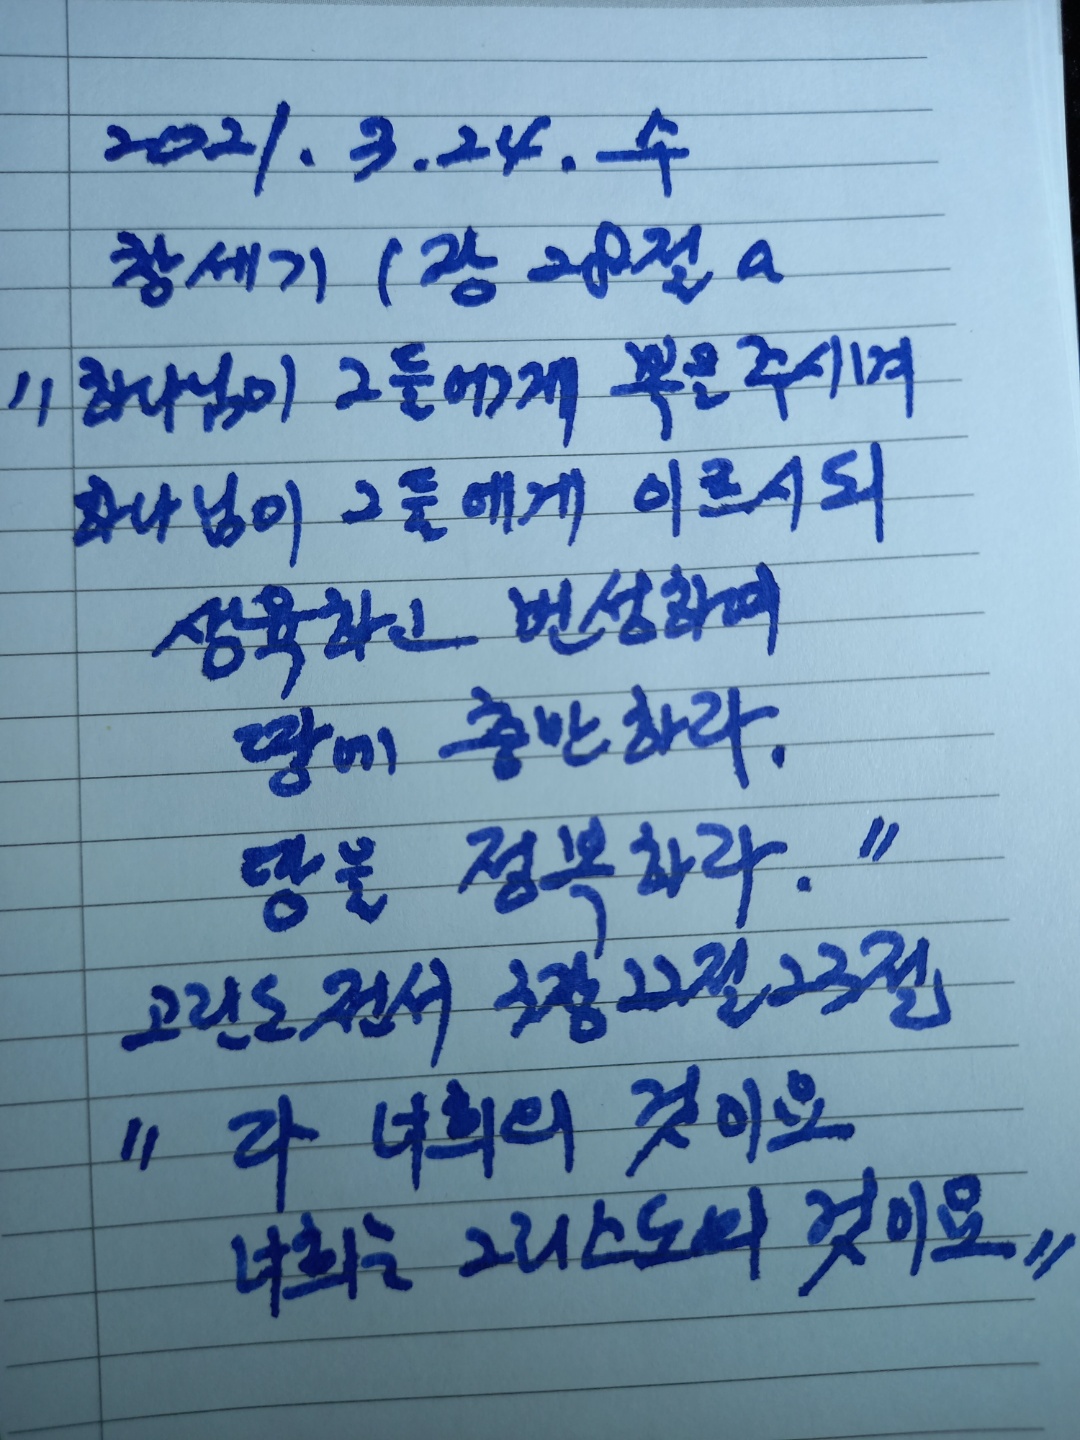 2021. 3. 24. 수
창세기 1장 28절 a
"하나님이 그들에게 복은 주시며
하나님이 그들에게 이르시되
생육하고 번성하며
땅에 충만하라.
땅을 정복하라."
고린도전서 3장 22절 23절
"다 너희의 것이요
너희는 그리스도의 것이요"